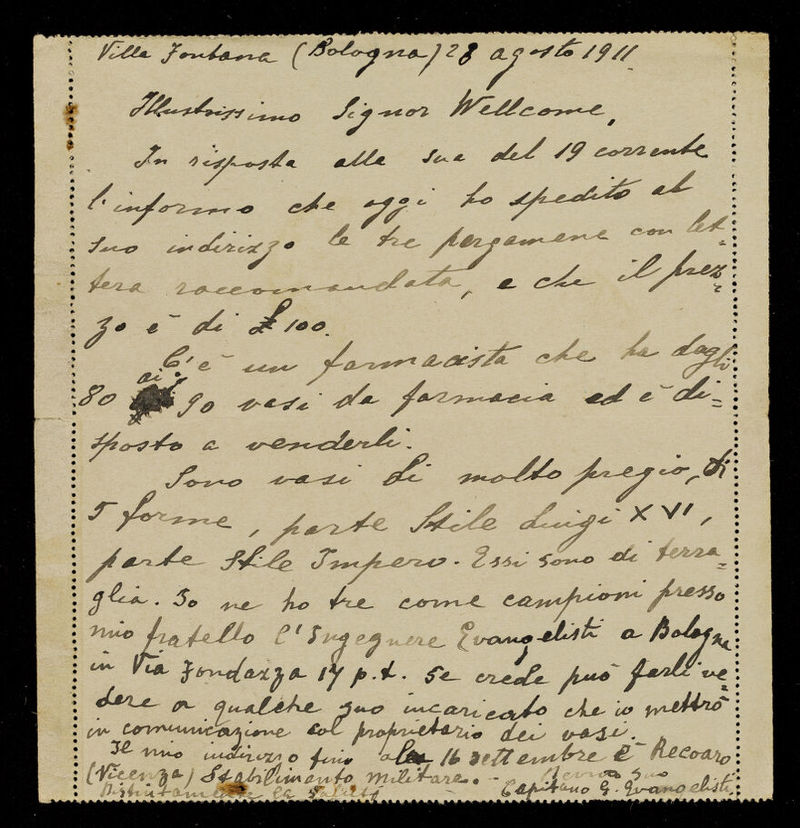 Villa Fontana (Bologna) 28 agosto 1911
Illustrissimo Signor Wellcome,
In risposta alla sua del 19 corrente
l'informo che oggi ho spedito al
suo indirizzo le tre pergamene con let=
tera raccomandata, e che il prez=
zo è di £ 100.
C'è un farmacista che ha dagli
80 ai 90 vasi da farmacia ed è di=
sposto a venderli.
Sono vasi di molto pregio, di
5 forme, parte Stile Luigi XVI,
parte Stile Impero. Essi sono di terra=
glia. Io ne ho tre come campioni presso
mio fratello l'Ingegnere Evangelisti a Bologna
in Via Fondazza 17 p.t. Se crede può farli ve=
dere a qualche suo incaricato che io mettrò
in comunicazione col proprietario dei vasi.
Il mio indirizzo fino al 16 settembre è Recoaro
(Vicenza) Stabilimento militare.
Distintamente la saluto suo
Capitano G. Evangelisti